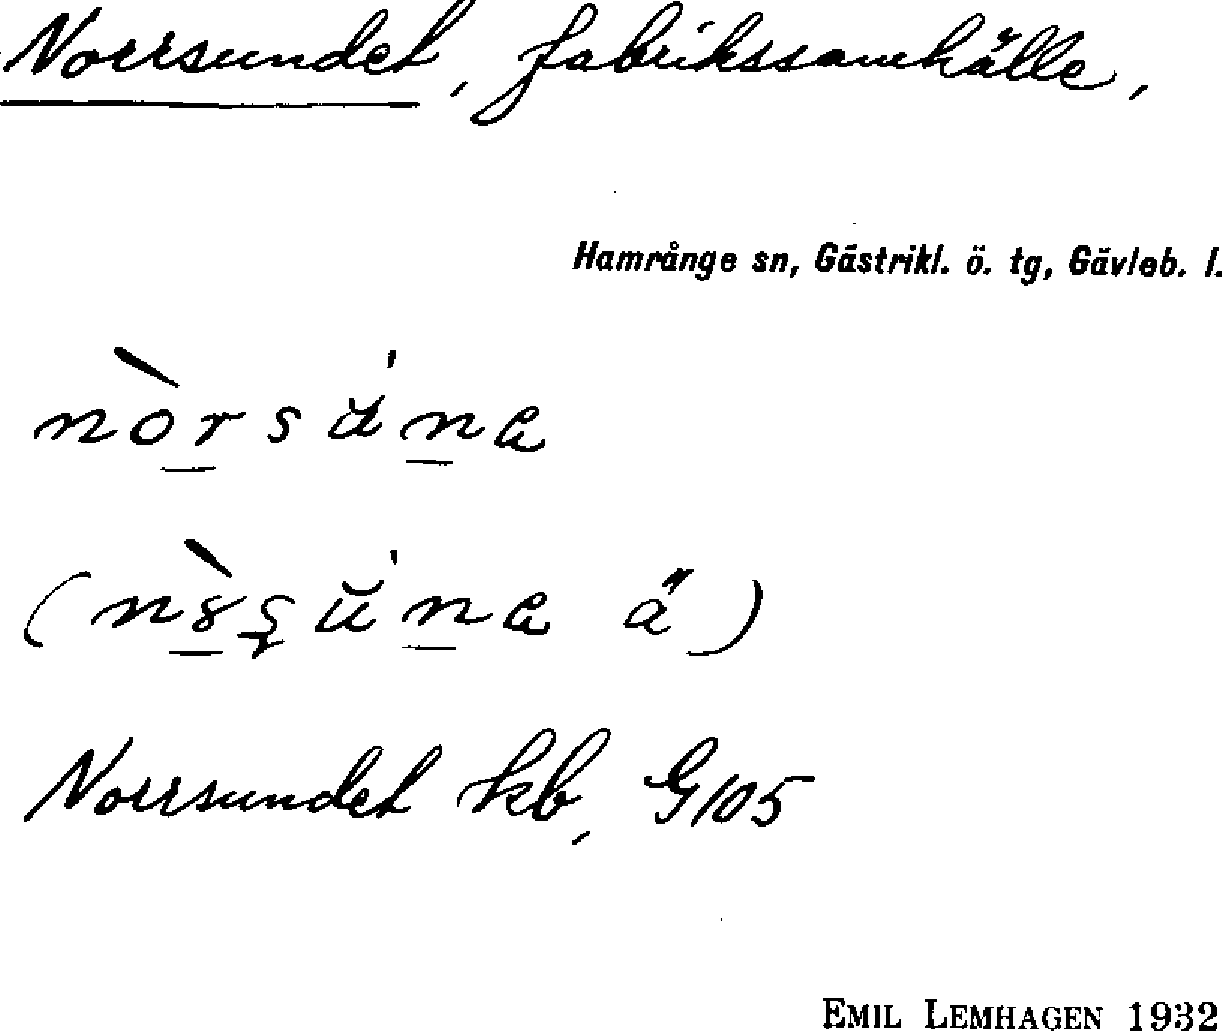 Norrsundet, fabrikssamhälle,
Hamrånge sn, Gästrikl. ö. tg, Gävleb. l.
Norrsundet kb, G105
EMIL LEMHAGEN 1932